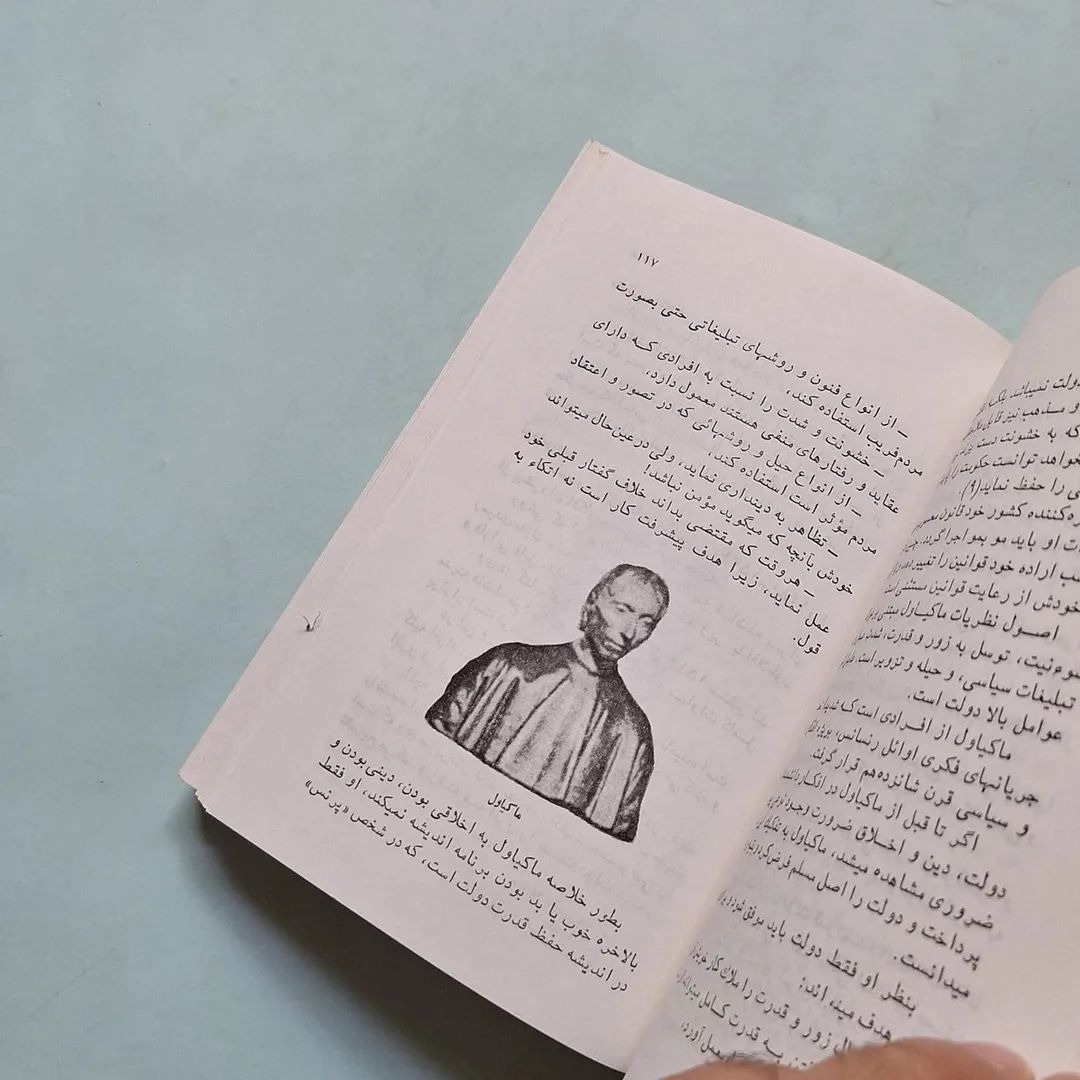 دولت نمیباشد بلکه
و مذهب نیز قابل
که به خشونت دست
خواهد توانست حکومت را
را حفظ نماید(۹).
کننده کشور خود قانون
او باید مو بمو اجرا گردد
اراده خود قوانین را تغییر دهد
خودش از رعایت قوانین مستثنی است
اصول نظریات ماکیاول مبتنی بر
سوءنیت، توسل به زور و قدرت، شدت
تبلیغات سیاسی، و حیله و تزویر است
عوامل بالا دولت است.
ماکیاول از افرادی است که
جریانهای فکری اوائل رنسانس، بویژه
و سیاسی قرن شانزدهم قرار گرفت.
اگر تا قبل از ماکیاول در افکار
دولت، دین و اخلاق ضرورت وجود
ضروری مشاهده میشد، ماکیاول به تفکیک
پرداخت و دولت را اصل مسلم فرض کرده
میدانست.
بنظر او فقط دولت باید موفق شود
هدف میداند:
زور و قدرت را ملاک کار خویش
به قدرت کامل
بعمل آورد،
۱۱۷
ـ از انواع فنون و روشهای تبلیغاتی حتی بصورت
مردم‌فریب استفاده کند،
ـ خشونت و شدت را نسبت به افرادی که دارای
عقاید و رفتارهای منفی هستند معمول دارد،
ـ از انواع حیل و روشهائی که در تصور و اعتقاد
مردم مؤثر است استفاده کند،
ـ تظاهر به دینداری نماید، ولی در عین‌حال میتواند
خودش بآنچه که میگوید مؤمن نباشد!
ـ هروقت که مقتضی بداند خلاف گفتار قبلی خود
عمل نماید، زیرا هدف پیشرفت کار است نه اتکاء به
قول.
ماکیاول
بطور خلاصه ماکیاول به اخلاقی بودن، دینی بودن و
بالاخره خوب یا بد بودن برنامه اندیشه نمیکند، او فقط
در اندیشه حفظ قدرت دولت است، که در شخص «پرنس»